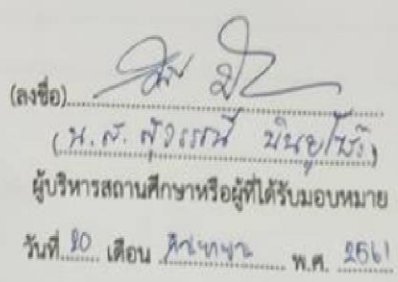 (ลงชื่อ)
(น.ส. สุวรรณี
ผู้บริหารสถานศึกษาหรือผู้ที่ได้รับมอบหมาย
วันที่ 20 เดือน พ.ศ. 2561